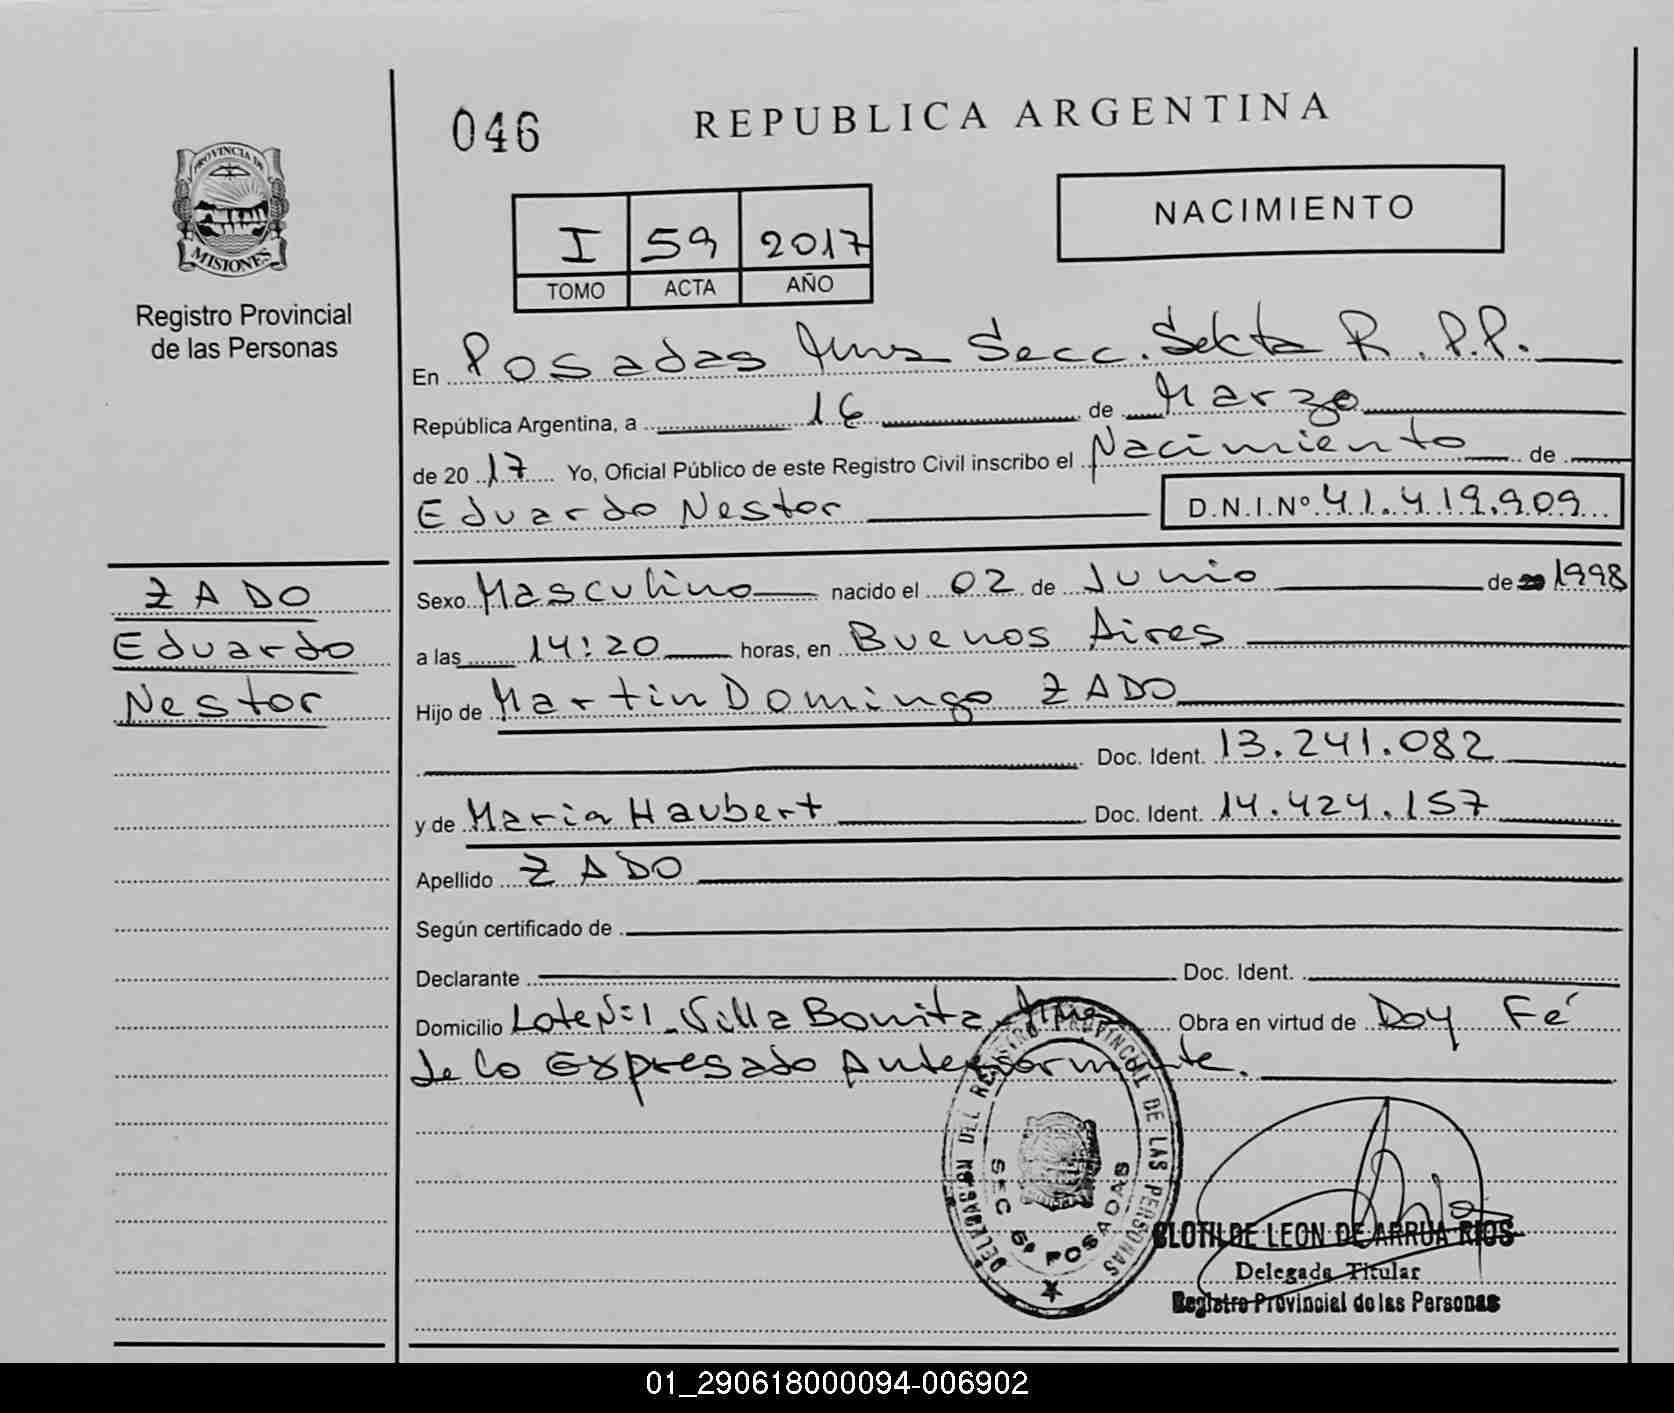 046
REPUBLICA ARGENTINA
PROVINCIA DE
MISIONES
Registro Provincial
de las Personas
NACIMIENTO
I 59 2017
TOMO ACTA AÑO
En Posadas Mnes Secc. Sekta R.P.P.
República Argentina, a 16 de Marzo
de 2017 Yo, Oficial Público de este Registro Civil inscribo el Nacimiento de
Eduardo Nestor D.N.I.Nº 41.419.909
ZADO
Eduardo
Nestor
Sexo Masculino nacido el 02 de Junio de 1998
a las 14:20 horas, en Buenos Aires
Hijo de Martin Domingo ZADO
Doc. Ident. 13.241.082
y de Maria Haubert Doc. Ident. 14.424.157
Apellido ZADO
Según certificado de
Declarante Doc. Ident.
Domicilio Lote Nº1 Villa Bonita Obra en virtud de Doy Fé
de lo Expresado Anteriormente.
DELEGACION DEL REGISTRO PROVINCIAL DE LAS PERSONAS
SEC 6ª POSADAS
CLOTILDE LEON DE ARRUA RIOS
Delegada Titular
Registro Provincial de las Personas
01_290618000094-006902